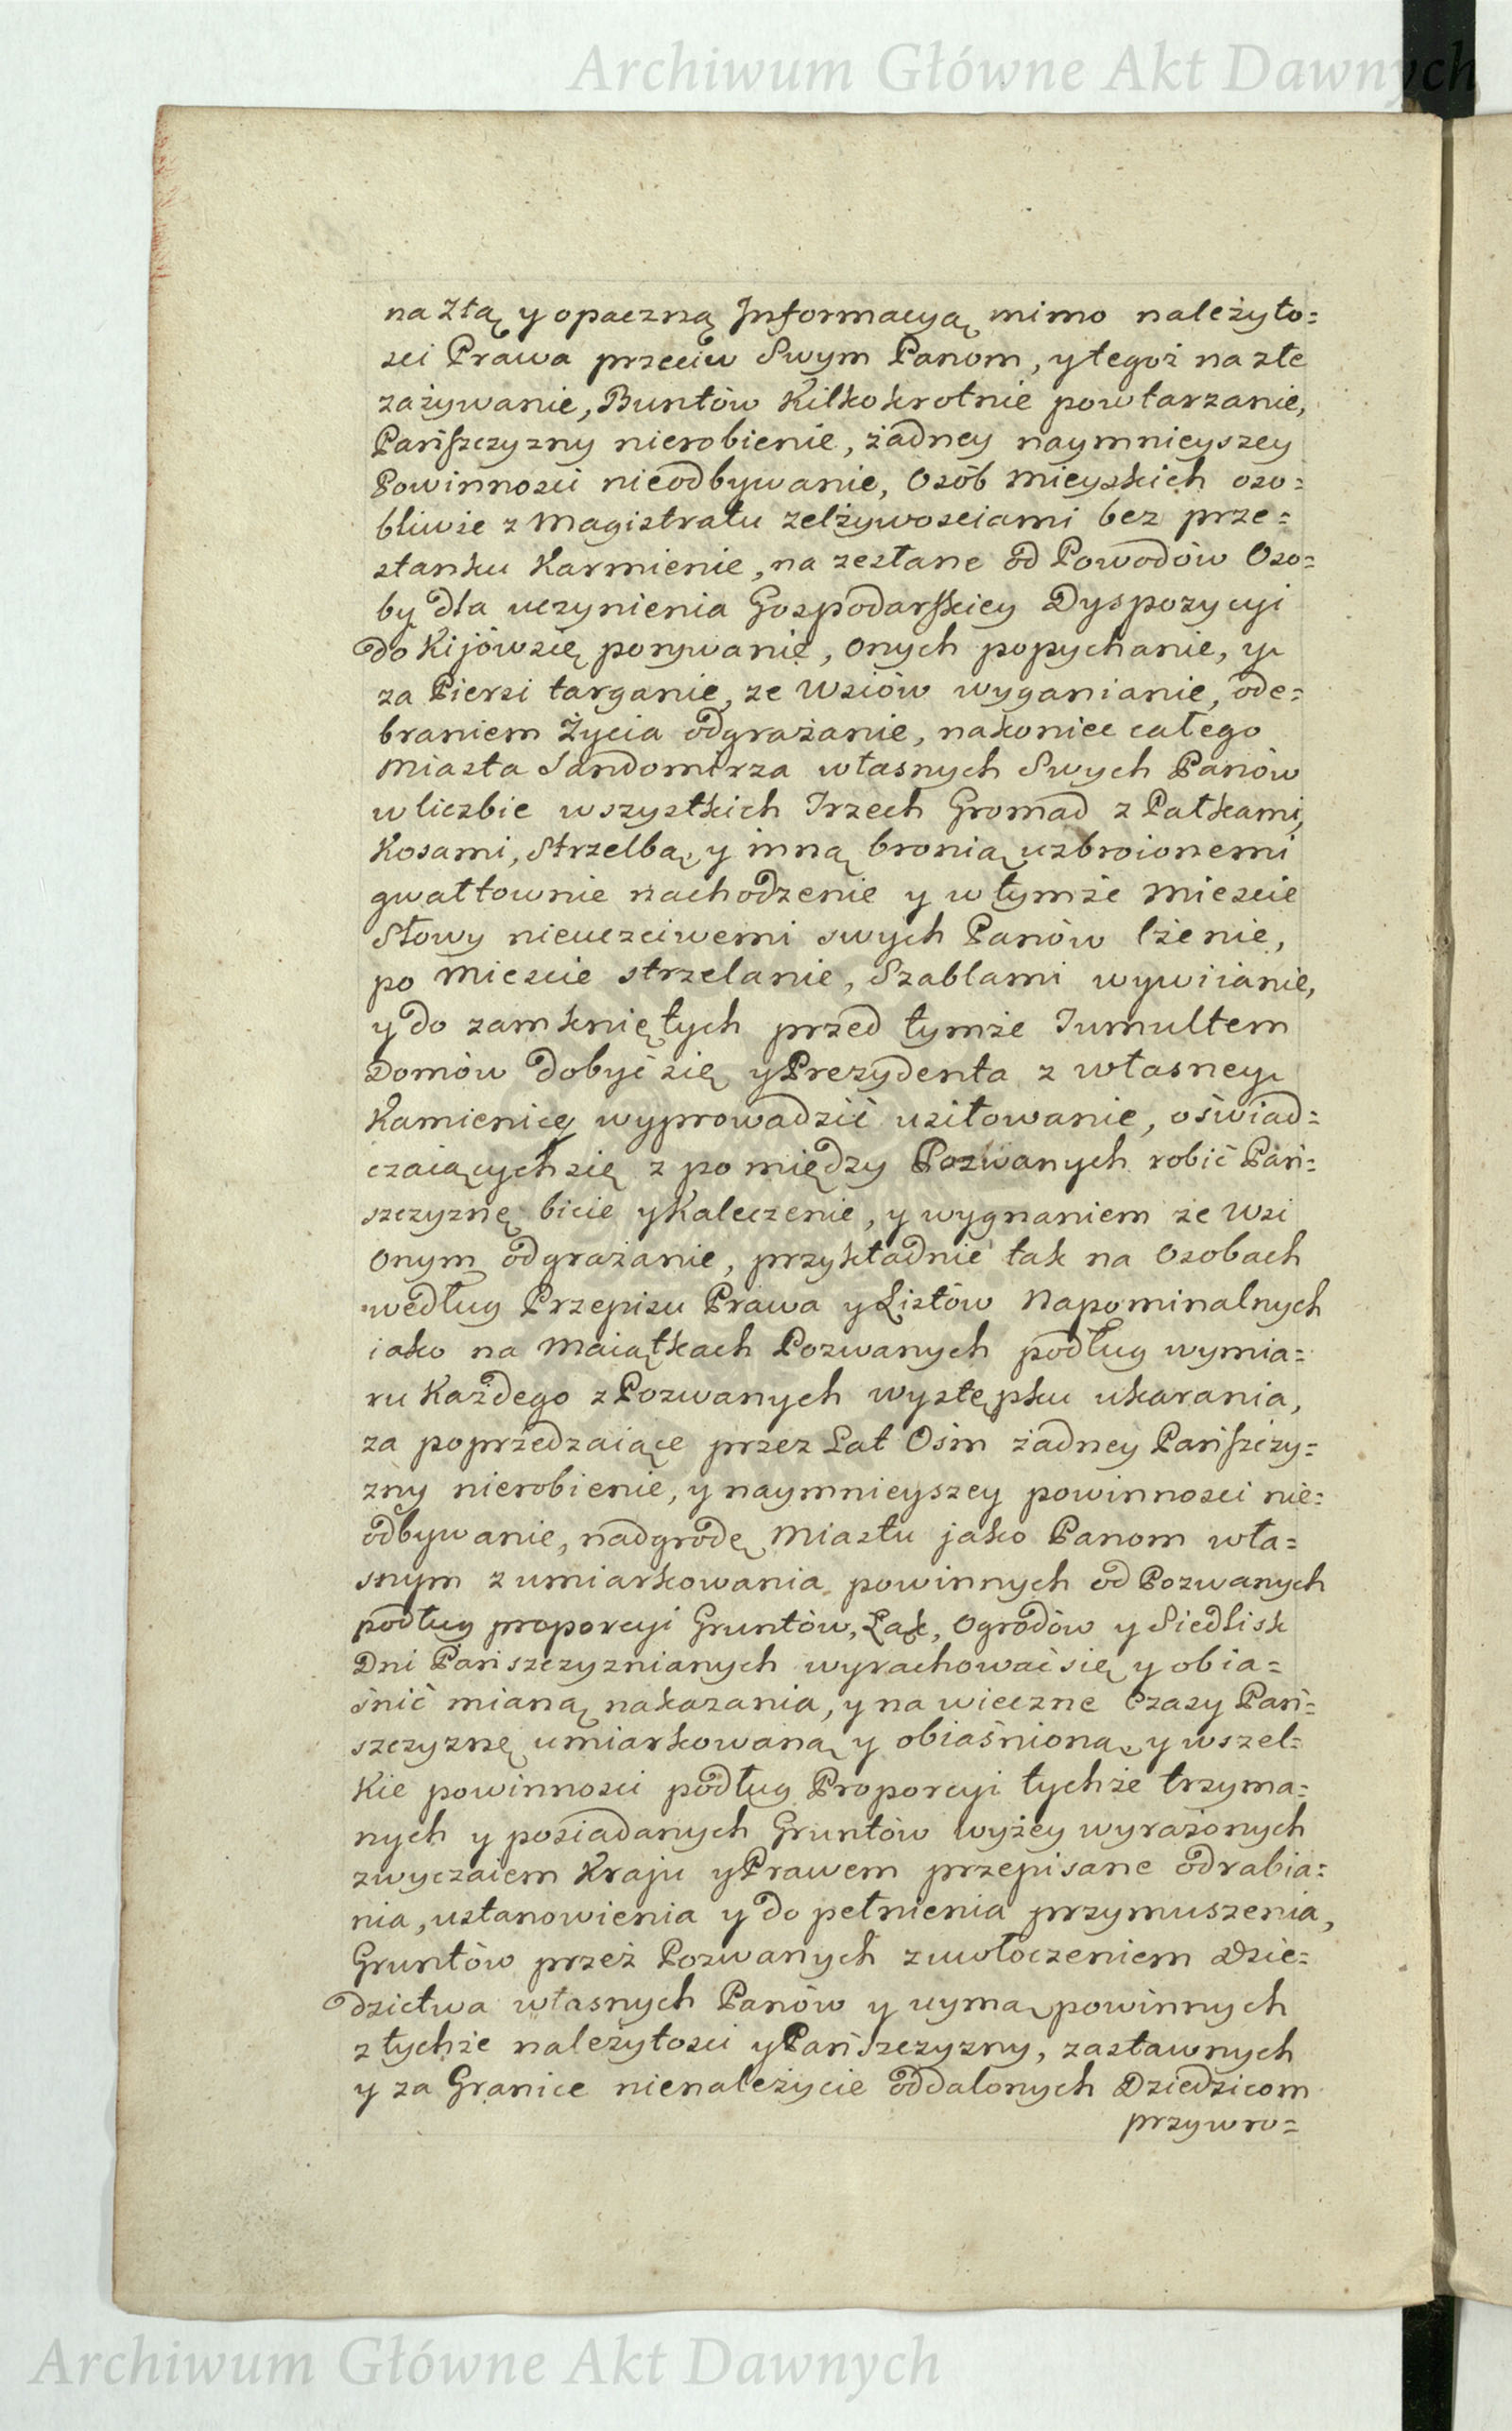 Archiwum Główne Akt Dawnych
na złą y opaczną Informacyą mimo należyto=
sci Prawa przeciw Swym Panom, y tegoż na złe
zażywanie, Buntów Kilkokrotnie powtarzanie,
Pańszczyzny nierobienie, żadney naymnieyszey
Powinnosci nieodbywanie, Osób Mieyskich oso=
bliwie z Magistratu zelżywosciami bez prze=
stanku Karmienie, na zesłane od Powodów Oso=
by dla uczynienia Gospodarskiey Dyspozycyi
do Kijów się porywanie, Onych popychanie, y
za Piersi targanie, ze Wsiów wyganianie, ode=
braniem Życia odgrażanie, nakoniec całego
Miasta Sandomirza własnych Swych Panów
w liczbie wszystkich Trzech Gromad z Pałkami,
Kosami, Strzelbą, y inną bronią uzbroionemi
gwałtownie nachodzenie y w tymże Miescie
Słowy nieuczciwemi swych Panów lżenie,
po Miescie strzelanie, Szablami wywiianie,
y do zamkniętych przed tymże Tumultem
Domów dobyć się y Prezydenta z własney
Kamienicy wyprowadzić usiłowanie, oświad=
czaiących się z pomiędzy Pozwanych robić Pań=
szczyznę bicie y Kaleczenie, y wygnaniem ze Wsi
Onym odgrażanie, przykładnie tak na Osobach
według Przepisu Prawa y Listów Napominalnych
iako na Maiątkach Pozwanych podług wymia=
ru Każdego z Pozwanych występku ukarania,
za poprzedzaiące przez Lat Ośm żadney Pańszczy=
zny nierobienie, y naymnieyszey powinnosci nie=
odbywanie, nadgrodę Miastu jako Panom wła=
snym z umiarkowania powinnych od Pozwanych
podług proporcyi Gruntów, Łąk, Ogrodów y Siedlisk
Dni Pańszczyznianych wyrachować się y obia=
śnić mianą nakazania, y na wieczne Czasy Pań=
szczyznę umiarkowaną y obiaśnioną, y wszel=
Kie powinnosci podług Proporcyi tychże trzyma=
nych y posiadanych Gruntów wyżey wyrażonych
zwyczaiem Kraju y Prawem przepisane odrabia=
nia, ustanowienia y do pełnienia przymuszenia,
Gruntów przez Pozwanych zwłóczeniem Dzie=
dzictwa własnych Panów y uymą powinnych
z tychże należytosci y Pańszczyzny, zastawnych
y za Granice nienależycie oddalonych Dziedzicom
przywro=
Archiwum Główne Akt Dawnych